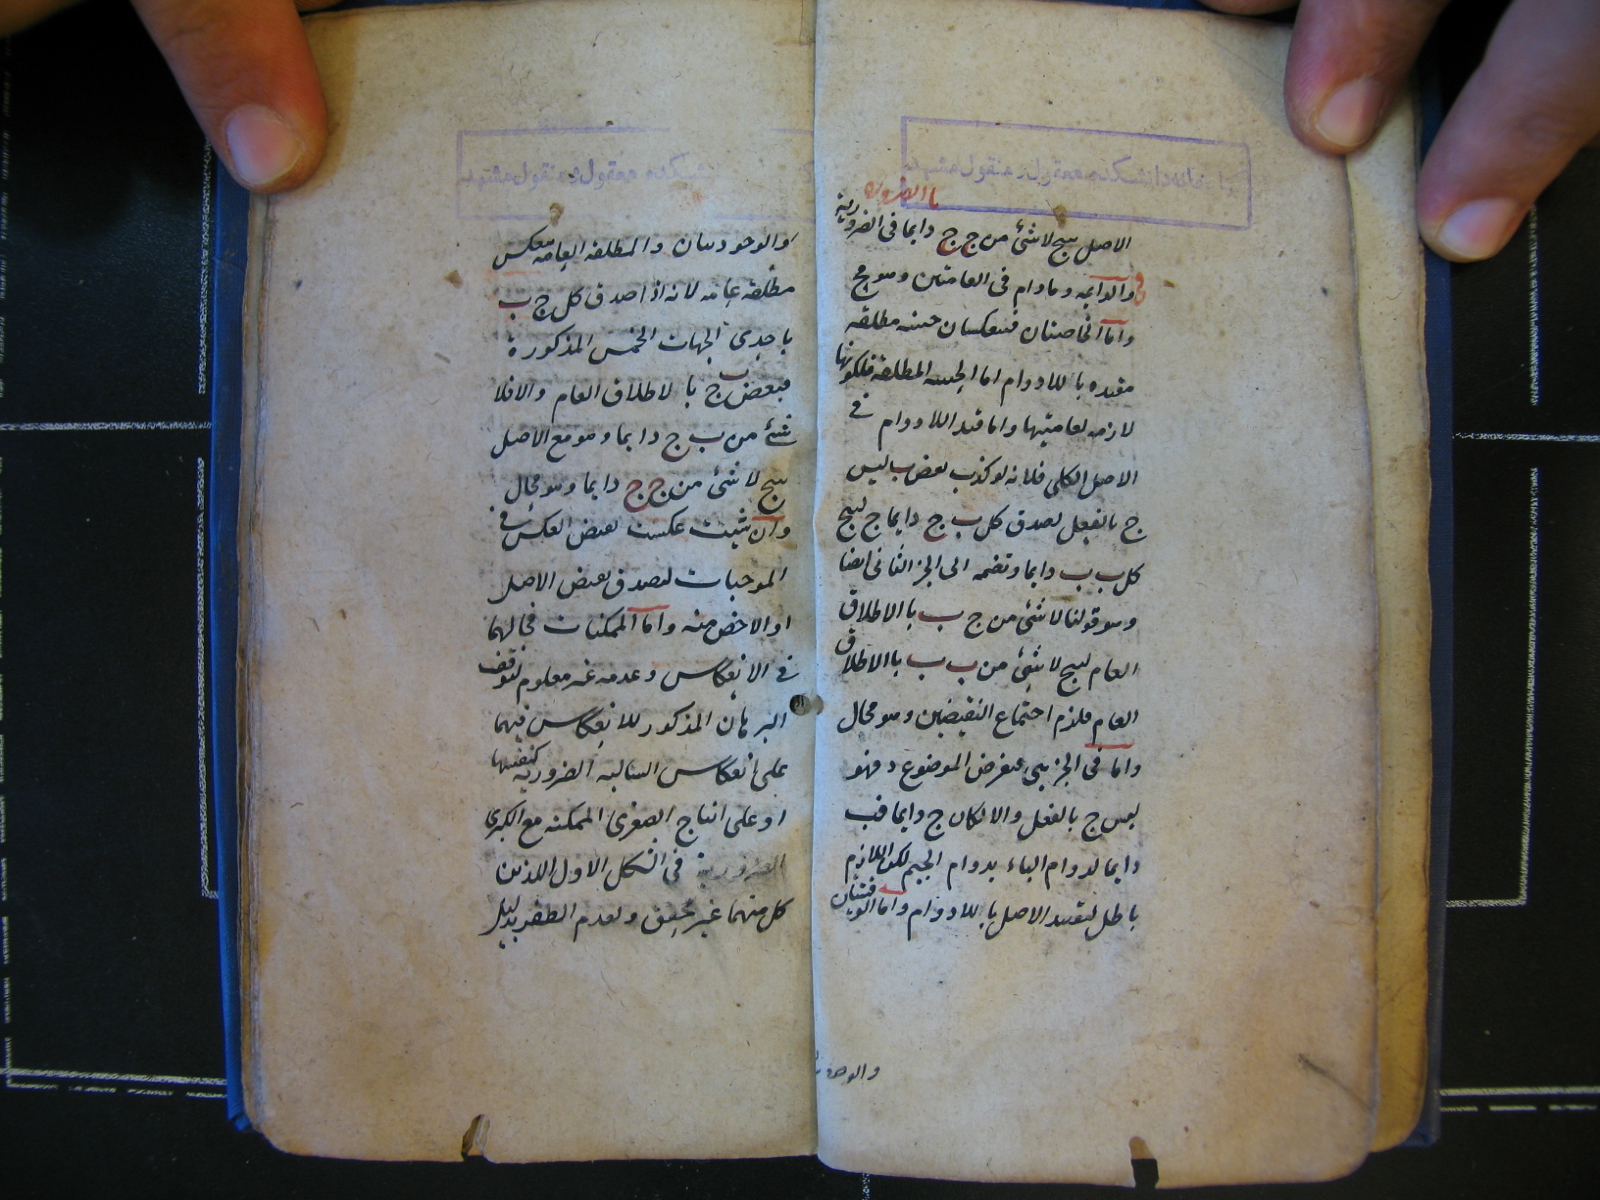 كتابخانه دانشكده معقول و منقول مشهد
بالضرورة
الاصل ينتج لا شئ من ج ج دايما فى الضرورية
والدايمه ومادام فى العامتين وهو مح
واما الخاصتان فتنعكسان حينيه مطلقه
مقيده باللادوام اما الحينيه المطلقه فلكونها
لازمه لعامتيها واما قيد اللادوام فى
الاصل الكلى فلانه لو كذب بعض ب ليس
ج بالفعل لصدق كل ب ج دايما ج لينتج
كل ب ب دايما وتضمه الى الجز الثانى ايضا
وهو قولنا لا شئ من ج ب باالاطلاق
العام لينتج لا شئ من ب ب باالاطلاق
العام فلزم اجتماع النقيضين وهو محال
واما فى الجزيى فنفرض الموضوع د فهو
ليس ج بالفعل والا لكان ج دايما فب
دايما لدوام الباء بدوام الجيم لكن اللازم
باطل لتقييد الاصل باللادوام واما الوقتيتان
والوجو
دانشكده معقول و منقول مشهد
والوجوديتان والمطلقه العامه فتنعكس
مطلقه عامه لانه اذا صدق كل ج ب
باحدى الجهات الخمس المذكورة
فبعض ب ج بالاطلاق العام والا فلا
شئ من ب ج دايما وهو مع الاصل
ينتج لا شئ من ج ج دايما وهو محال
وان شيت عكست نقيض العكس فى
الموجبات ليصدق نقيض الاصل
او الاخص منه واما الممكنتان فحالهما
فى الانعكاس وعدمه غير معلوم لتوقف
البرهان المذكور للانعكاس فيهما
على انعكاس السالبه الضروريه كنفسها
او على انتاج الصغرى الممكنه مع الكبرى
الضرورية فى الشكل الاول اللذين
كل منهما غير محقق ولعدم الظفر بدليل